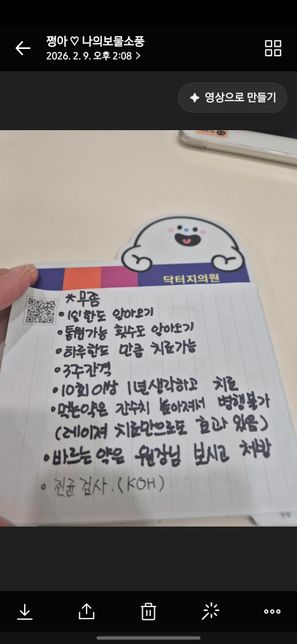 쩡아 ♡ 나의보물소풍
2026. 2. 9. 오후 2:08 >
영상으로 만들기
닥터지의원
*무좀
• 1일한도 알아오기
• 통원가능 횟수도 알아오기
• 하루한도 만큼 치료가능
• 3주간격
• 10회이상 1년생각하고 치료
• 먹는약은 간수치 높아져서 병행불가
(레이져 치료만으로도 효과 있음)
• 바르는 약은 원장님 보시고 처방
• 진균 검사. (KOH)